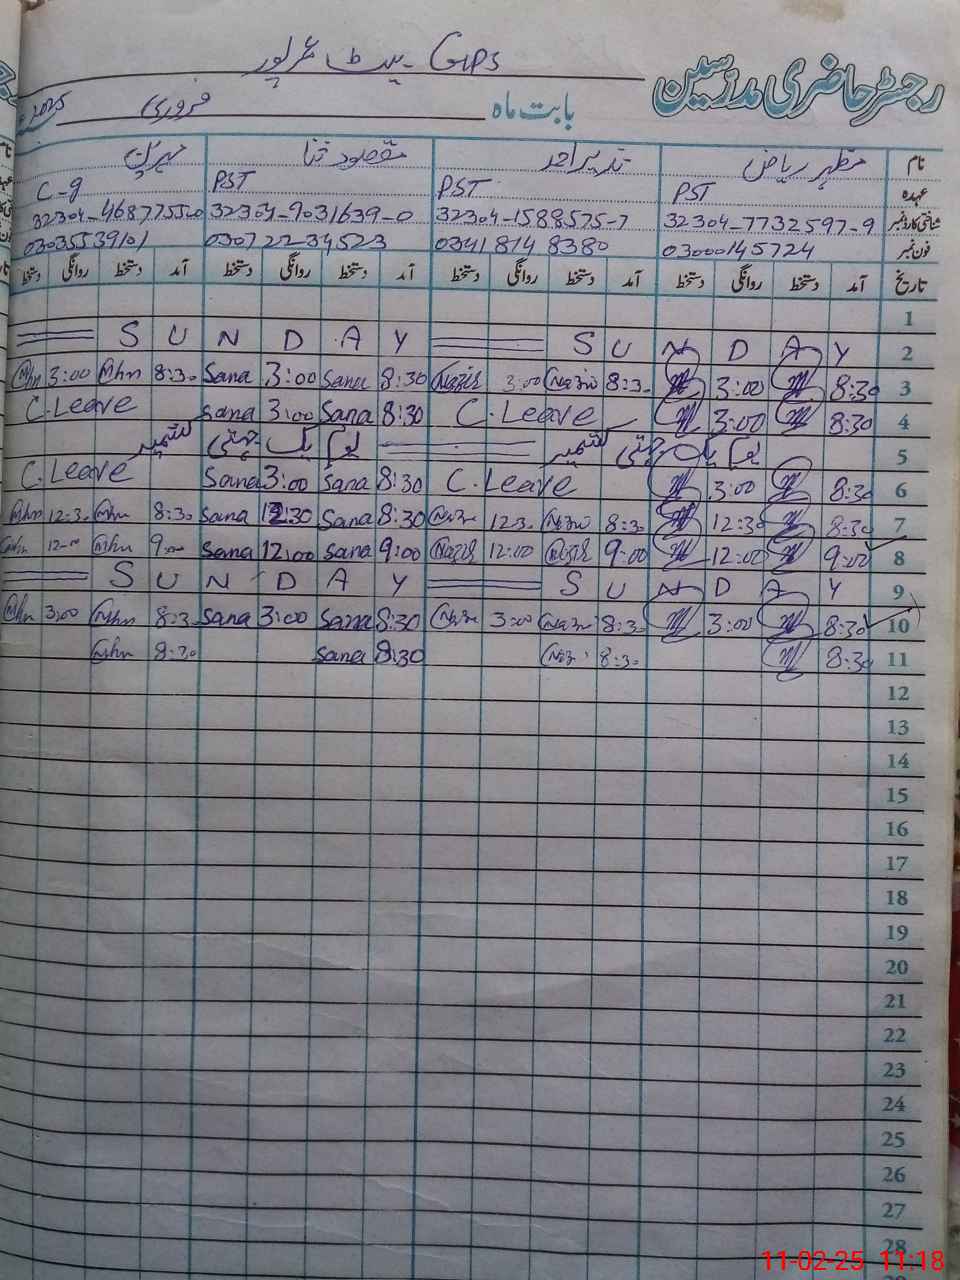 رجسٹر حاضری مدرسین
GPS بیٹ عمر پور
بابت ماہ فروری 2025
نام مظہر ریاض نذیر احمد مقصود ثنا
عہدہ PST PST PST C-g
شناختی کارڈ نمبر 32304-7732597-9 32304-1588575-7 32304-9031639-0
فون نمبر 03000145724 03418148380 03072234523 03035539101
تاریخ آمد دستخط روانگی دستخط آمد دستخط روانگی دستخط آمد دستخط روانگی دستخط آمد دستخط روانگی دستخط
1
S U N D A Y S U N D A Y 2
Mhn 3:00 Mhn 8:30 Sana 3:00 Sana 8:30 Nazir 3:00 Nazir 8:30 3:00 8:30 3
C.Leave Sana 3:00 Sana 8:30 C.Leave 3:00 8:30 4
5 یوم یک جہتی کشمیر یوم یک جہتی کشمیر
C.Leave Sana 3:00 Sana 8:30 C.Leave 3:00 8:30 6
Mhn 12:30 Mhn 8:30 Sana 12:30 Sana 8:30 Nazir 12:30 Nazir 8:30 12:30 8:30 7
Mhn 12:00 Mhn 9:00 Sana 12:00 Sana 9:00 Nazir 12:00 Nazir 9:00 12:00 9:00 8
S U N D A Y S U N D A Y 9
Mhn 3:00 Mhn 8:30 Sana 3:00 Sana 8:30 Nazir 3:00 Nazir 8:30 3:00 8:30 10
Mhn 8:30 Sana 8:30 Nazir 8:30 8:30 11
12
13
14
15
16
17
18
19
20
21
22
23
24
25
26
27
28
11-02-25 11:18